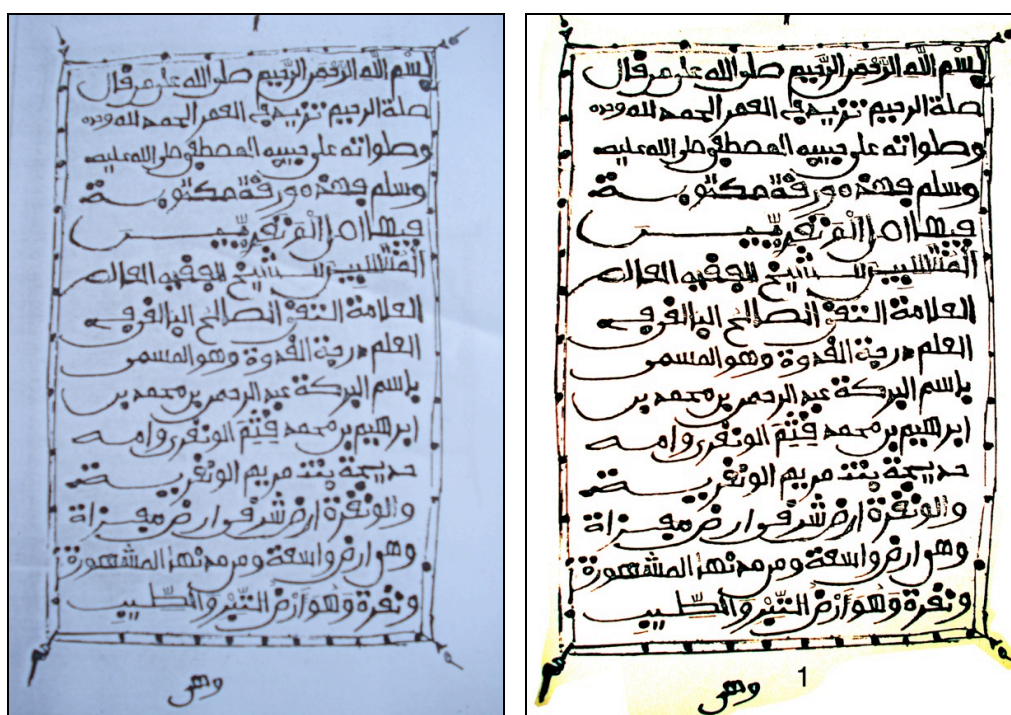 بسم الله الرحمن الرحيم صلى الله على من قال
صلة الرحيم تزيد في العمر الحمد لله وحده
وصلواته على حبيبه المصطفى صلى الله عليه
وسلم فهذه ورقة مكتوبة
فيها اصل الونقريين
المنتسبين للشيخ الفقيه العالم
العلامة التقي الصالح البالغ في
العلم درجة القدوة وهو المسمى
بإسم البركة عبد الرحمن بن محمد بن
ابرهيم بن محمد قثم الونقري وامه
خديجة بنت مريم الونقرية
والونقرة ارض شرقى ارض
وهى ارض واسعة ومن مدنها المشهورة
ونقرة وهو أرض التبر والطيب
وهى
بسم الله الرحمن الرحيم صلى الله على من قال
صلة الرحيم تزيد في العمر الحمد لله وحده
وصلواته على حبيبه المصطفى صلى الله عليه
وسلم فهذه ورقة مكتوبة
فيها اصل الونقريين
المنتسبين للشيخ الفقيه العالم
العلامة التقي الصالح البالغ في
العلم درجة القدوة وهو المسمى
بإسم البركة عبد الرحمن بن محمد بن
ابرهيم بن محمد قثم الونقري وامه
خديجة بنت مريم الونقرية
والونقرة ارض شرقى ارض
وهى ارض واسعة ومن مدنها المشهورة
ونقرة وهو أرض التبر والطيب
وهى
1